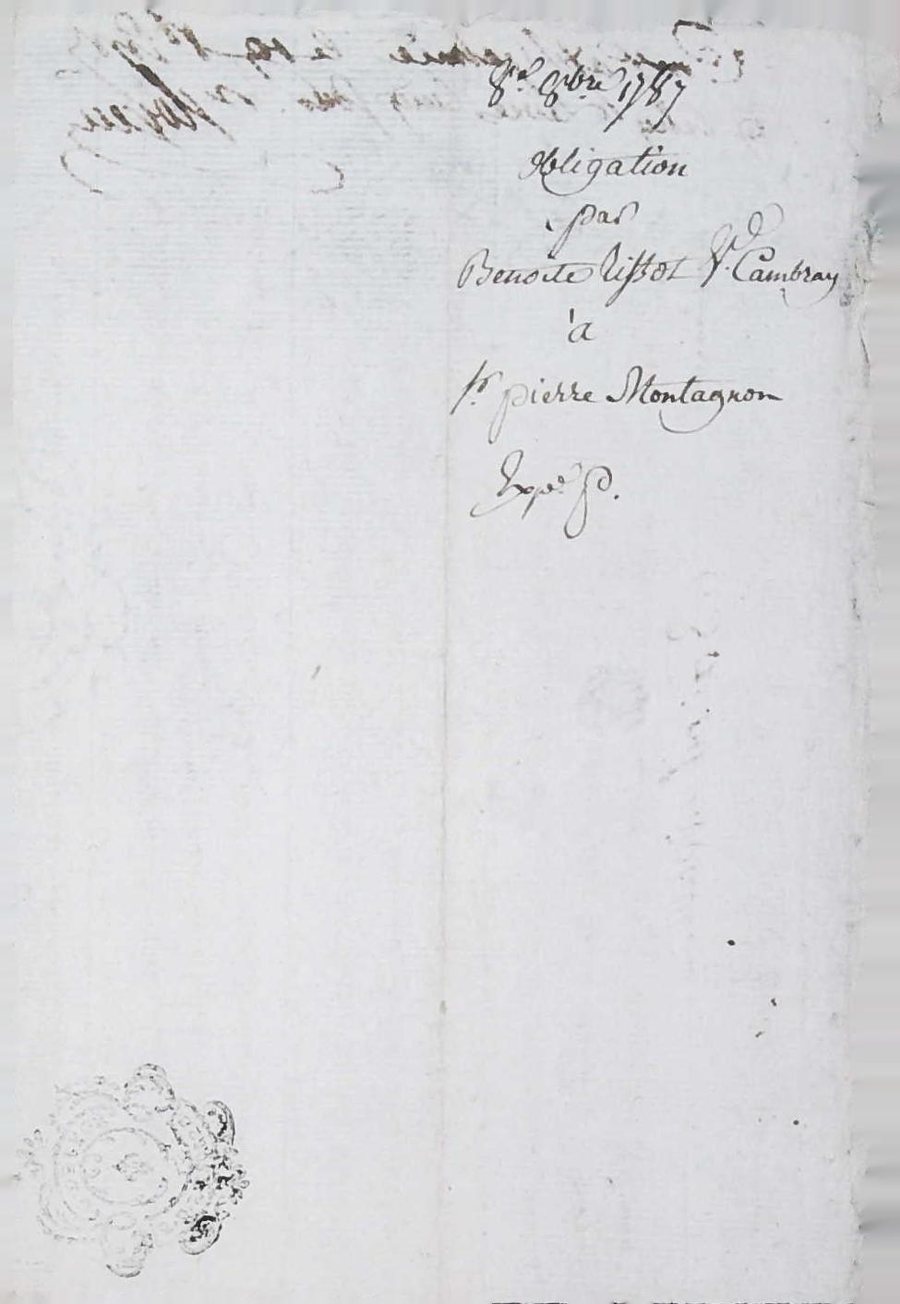 8e 8bre 1787
Obligation
par
Benoite Tissot Ve Cambray
à
Sr pierre Montagnon
Expe P.